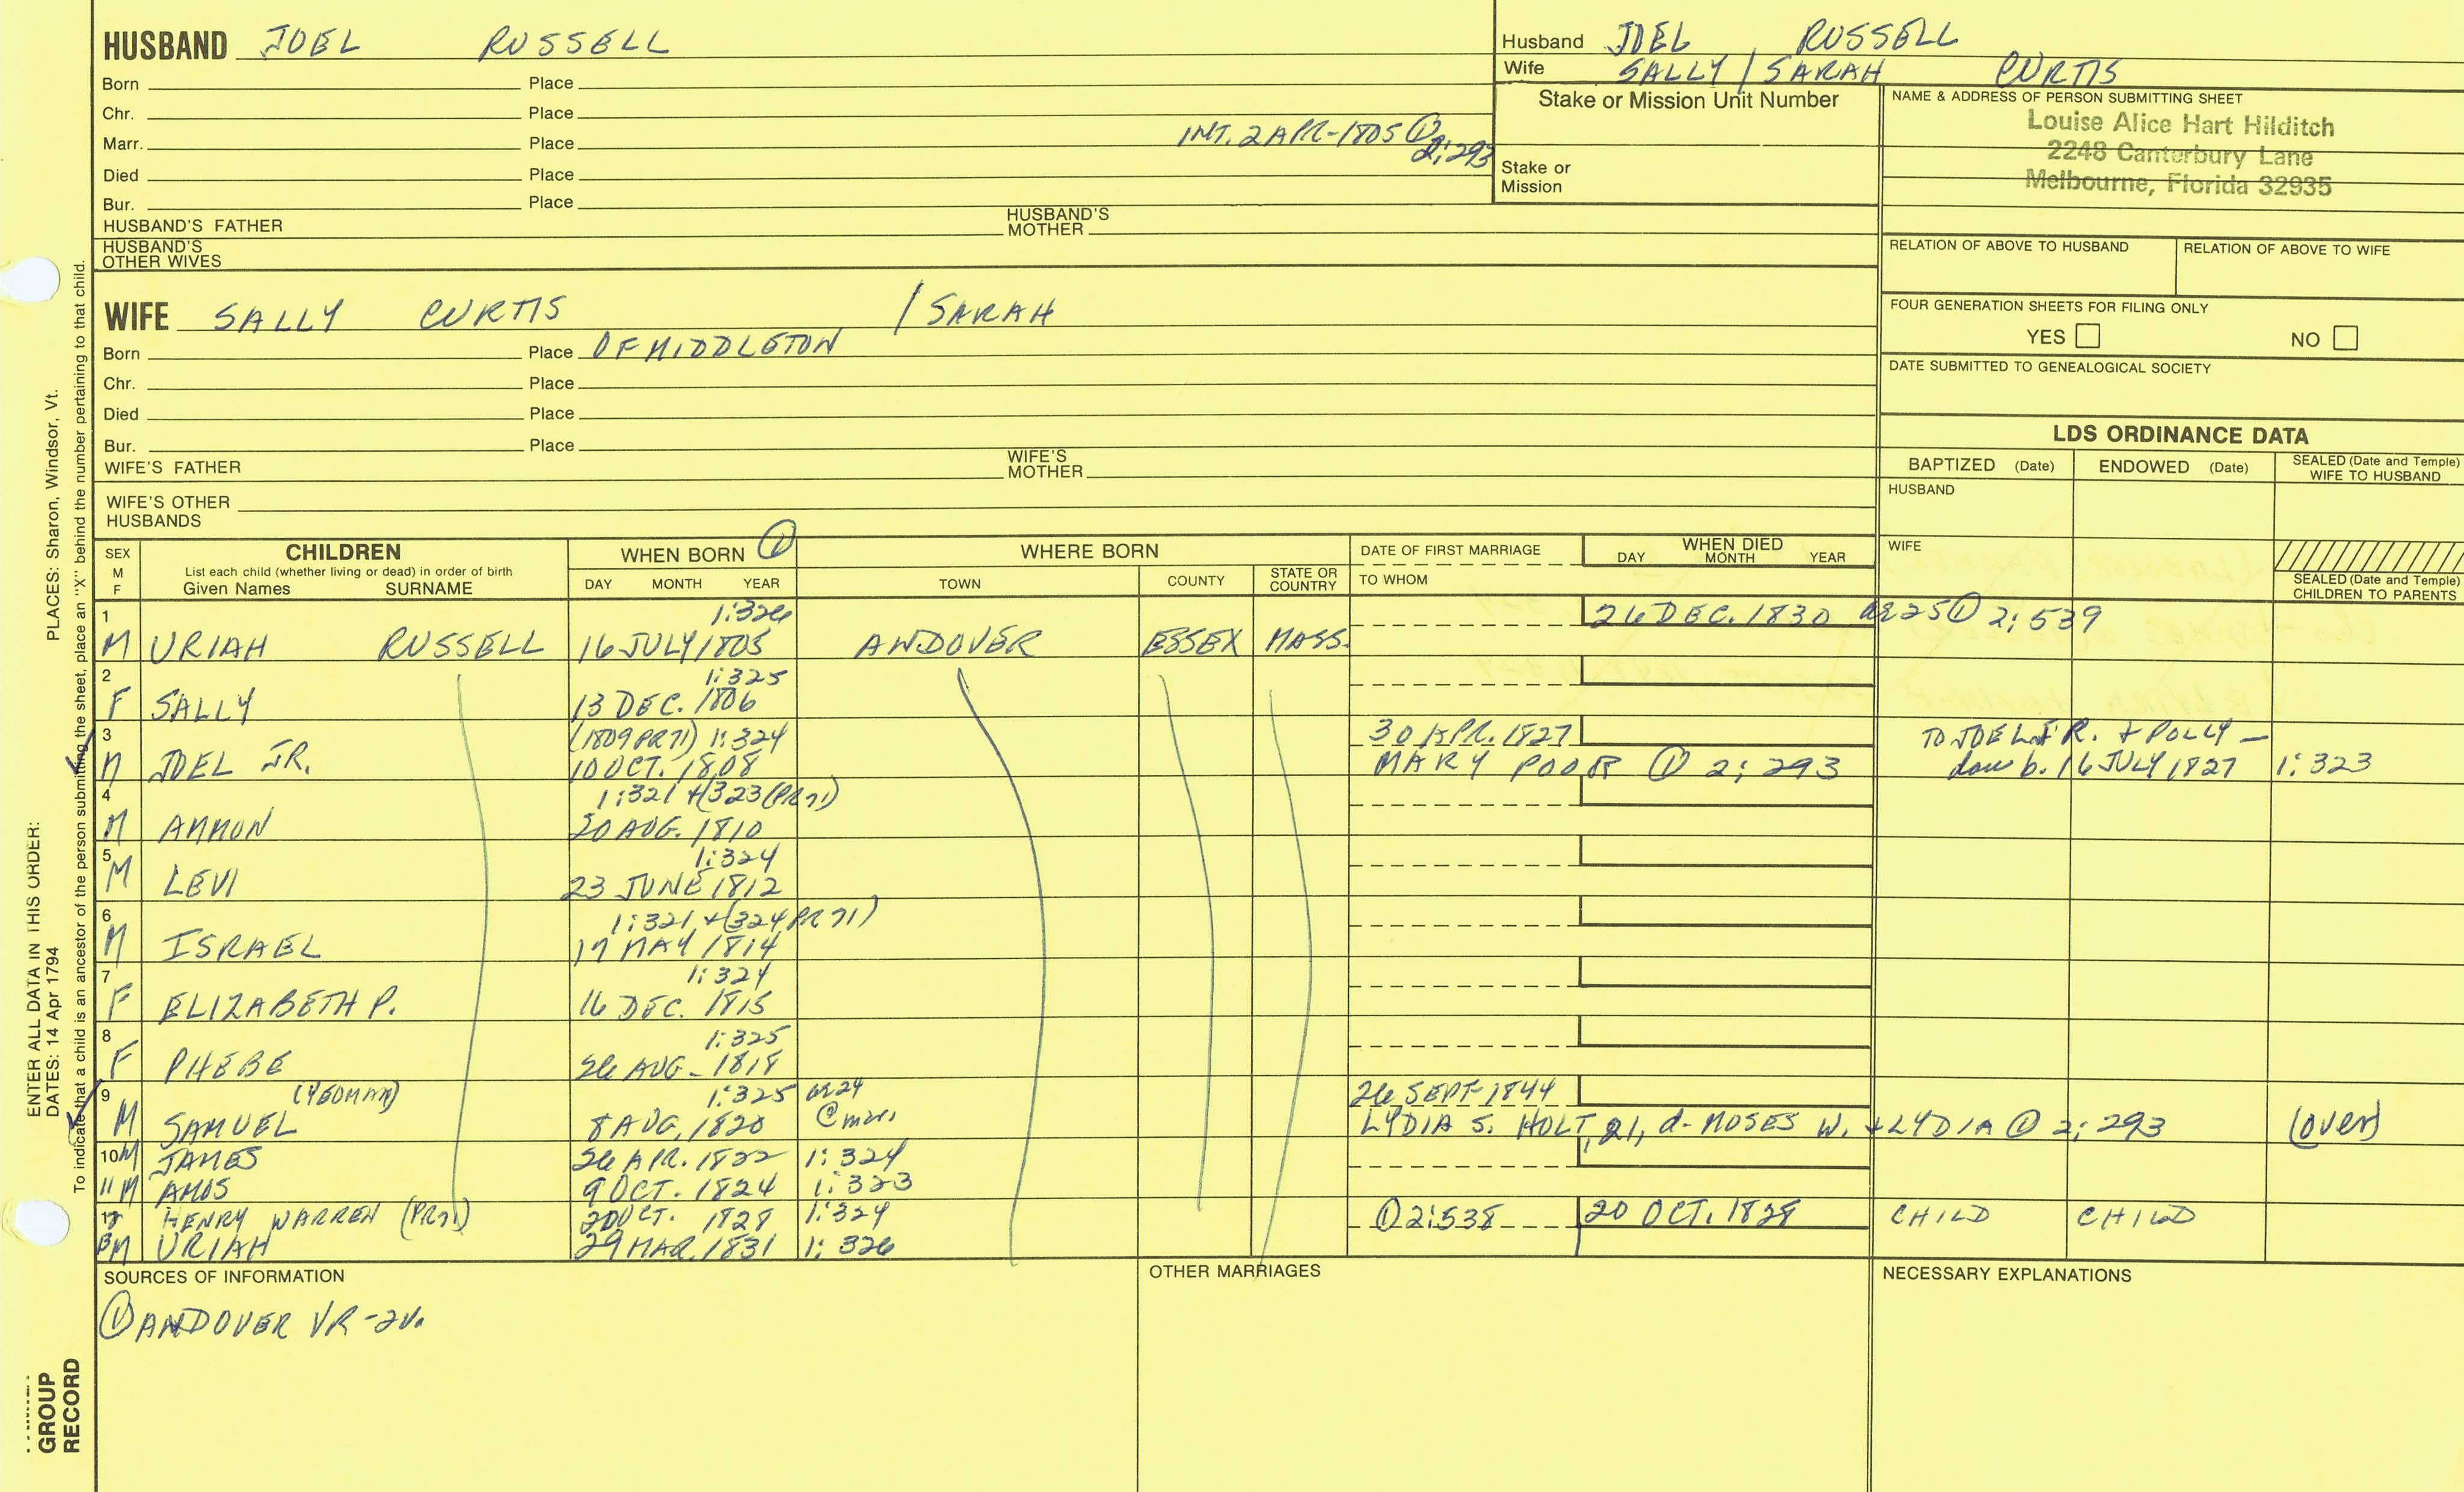 HUSBAND JOEL RUSSELL
Born Place
Chr. Place
Marr. Place INT. 2 APR-1805 ① 2:293
Died Place
Bur. Place
HUSBAND'S FATHER HUSBAND'S MOTHER
HUSBAND'S OTHER WIVES
Husband JOEL RUSSELL
Wife SALLY / SARAH CURTIS
Stake or Mission Unit Number
Stake or Mission
NAME & ADDRESS OF PERSON SUBMITTING SHEET
Louise Alice Hart Hilditch
2248 Canterbury Lane
Melbourne, Florida 32935
RELATION OF ABOVE TO HUSBAND RELATION OF ABOVE TO WIFE
FOUR GENERATION SHEETS FOR FILING ONLY
YES NO
DATE SUBMITTED TO GENEALOGICAL SOCIETY
WIFE SALLY CURTIS / SARAH
Born Place OF MIDDLETON
Chr. Place
Died Place
Bur. Place
WIFE'S FATHER WIFE'S MOTHER
WIFE'S OTHER HUSBANDS
LDS ORDINANCE DATA
BAPTIZED (Date) ENDOWED (Date) SEALED (Date and Temple) WIFE TO HUSBAND
HUSBAND
WIFE
SEALED (Date and Temple) CHILDREN TO PARENTS
SEX M F
CHILDREN
List each child (whether living or dead) in order of birth
Given Names SURNAME
WHEN BORN ①
DAY MONTH YEAR
WHERE BORN
TOWN COUNTY STATE OR COUNTRY
DATE OF FIRST MARRIAGE
TO WHOM
WHEN DIED
DAY MONTH YEAR
1 1:326 26 DEC. 1830 ae 25 ① 2:539
M URIAH RUSSELL 16 JULY 1805 ANDOVER ESSEX MASS.
2 1:325
F SALLY 13 DEC. 1806
3 (1809 PR71) 1:324 30 APR. 1827 TO JOEL JR. + POLLY —
M JOEL JR. 10 OCT. 1808 MARY POOR ① 2:293 dau b. 16 JULY 1827 1:323
4 1:321 + (323 (PR71)
M AMMON 20 AUG. 1810
5 1:324
M LEVI 23 JUNE 1812
6 1:321 + (324 PR71)
M ISRAEL 17 MAY 1814
7 1:324
F ELIZABETH P. 16 DEC. 1815
8 1:325
F PHEBE 26 AUG - 1818
9 (YEOMAN) 1:325 ae 24 26 SEPT-1844
M SAMUEL 8 AUG. 1820 @ marr. LYDIA S. HOLT, 21, d- MOSES W. + LYDIA ① 2:293 (over)
10 M JAMES 26 APR. 1822 1:324
11 M AMOS 9 OCT. 1824 1:323
12 HENRY WARREN (PR71) 2 OCT. 1828 1:324 ① 2:538 20 OCT. 1828 CHILD CHILD
13 M URIAH 29 MAR. 1831 1:326
SOURCES OF INFORMATION
① ANDOVER VR-2v.
OTHER MARRIAGES
NECESSARY EXPLANATIONS
ENTER ALL DATA IN THIS ORDER:
DATES: 14 Apr 1794 PLACES: Sharon, Windsor, Vt.
To indicate that a child is an ancestor of the person submitting the sheet, place an "X" behind the number pertaining to that child.
GROUP
RECORD